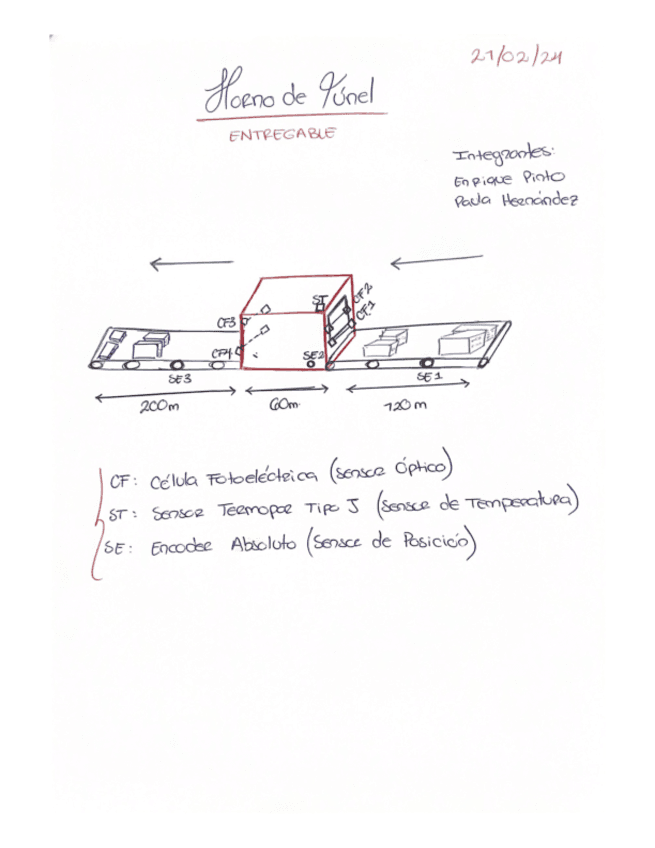 21/02/24
Horno de Túnel
ENTREGABLE
Integrantes:
Enrique Pinto
Paula Hernández
ST
CF2
CF1
CF3
CF4
SE2
SE3
SE1
200m
60m
120m
CF: Célula Fotoeléctrica (Sensor Óptico)
ST: Sensor Termopar Tipo J (Sensor de Temperatura)
SE: Encoder Absoluto (Sensor de Posición)